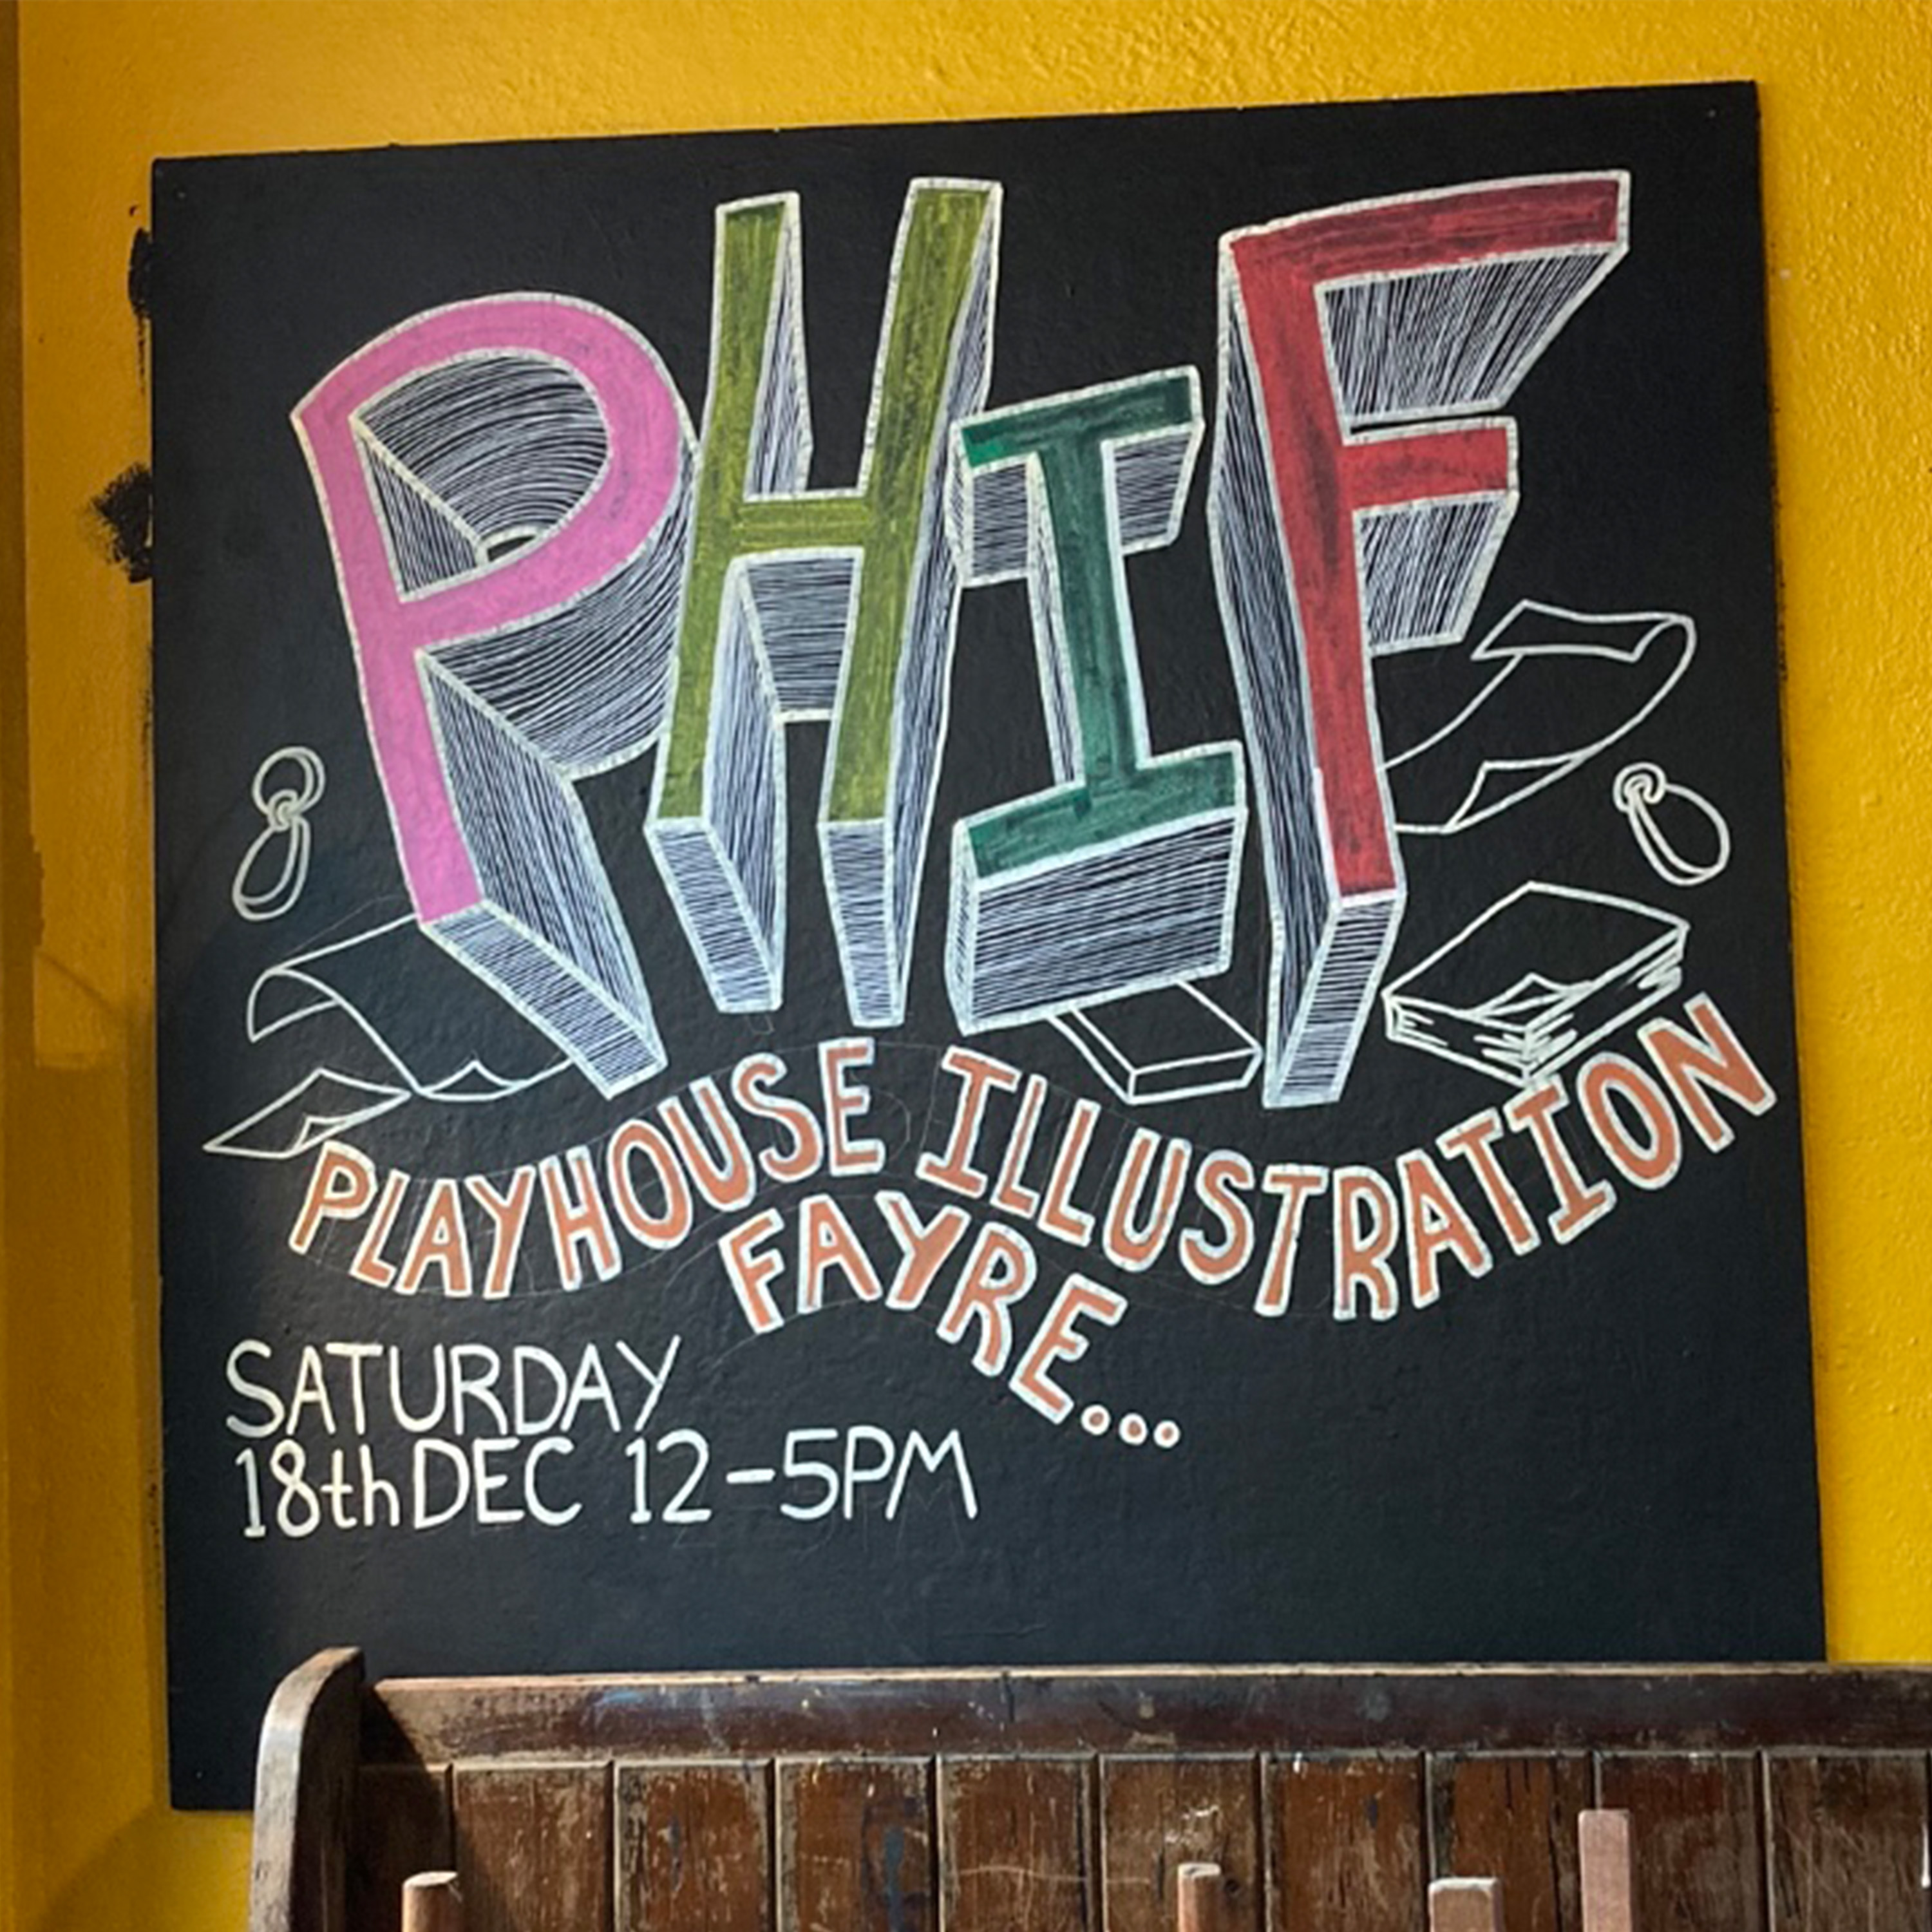 PHIF
PLAYHOUSE ILLUSTRATION
FAYRE...
SATURDAY
18th DEC 12-5PM